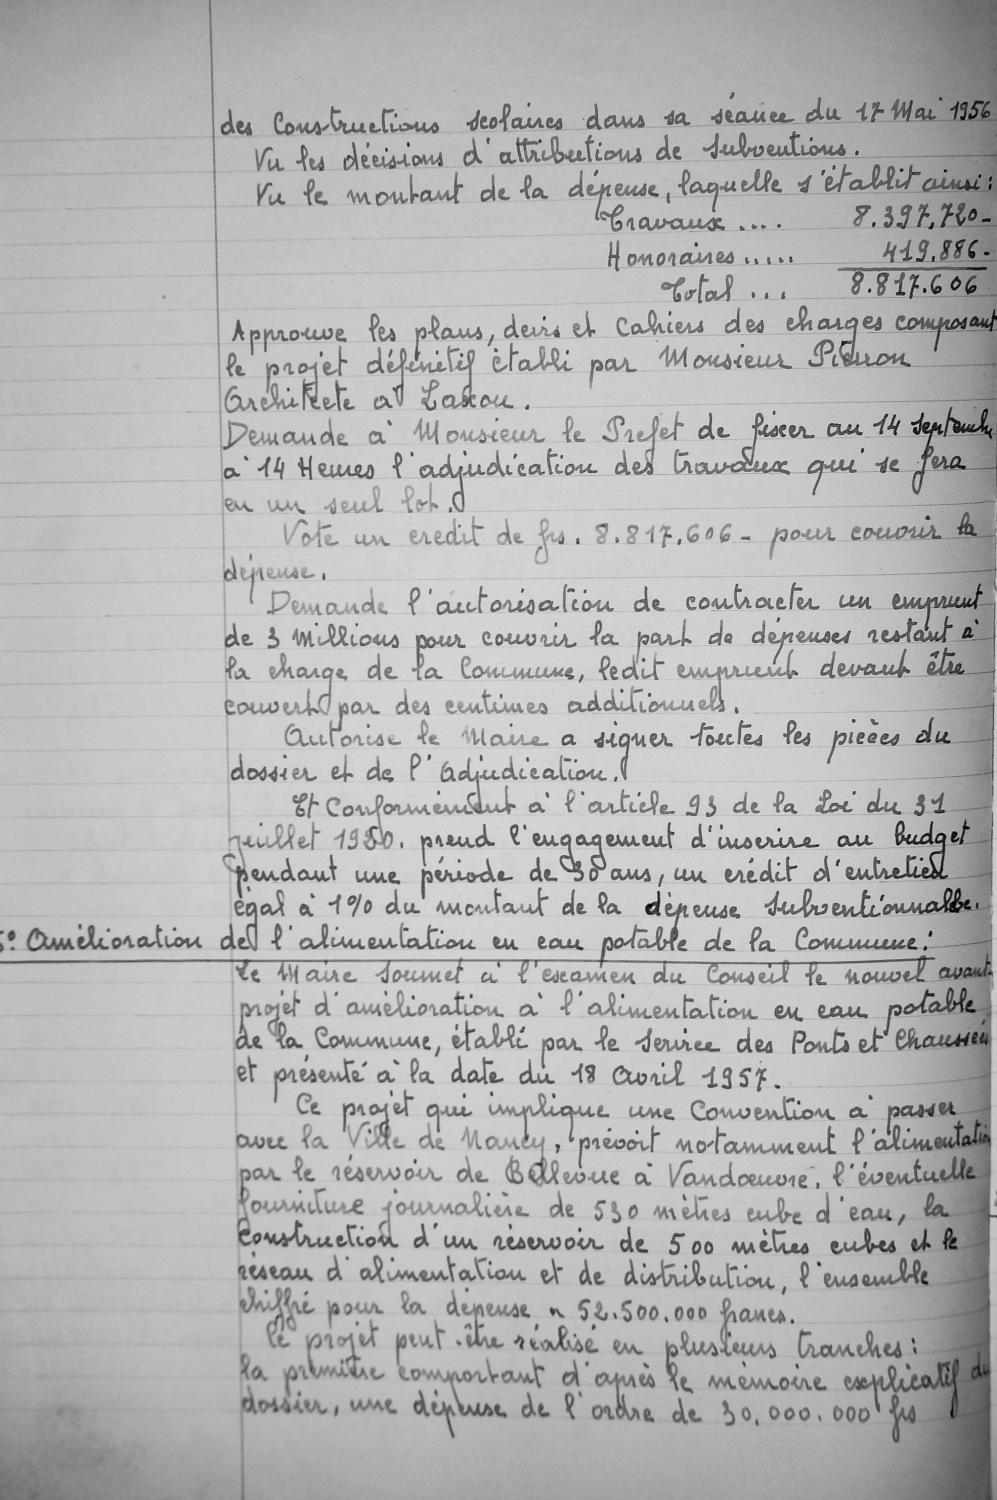 des Constructions scolaires dans sa séance du 17 Mai 1956
Vu les décisions d'attributions de subventions.
Vu le montant de la dépense, laquelle s'établit ainsi :
Travaux .... 8.397.720-
Honoraires ..... 419.886-
Total ... 8.817.606
Approuve les plans, devis et Cahiers des charges composant
le projet définitif établi par Monsieur Pierron
Architecte à Laxou.
Demande à Monsieur le Préfet de fixer au 14 septembre
à 14 Heures l'adjudication des travaux qui se fera
en un seul lot.
Vote un crédit de frs. 8.817.606- pour couvrir la
dépense.
Demande l'autorisation de contracter un emprunt
de 3 Millions pour couvrir la part de dépenses restant à
la charge de la Commune, ledit emprunt devant être
couvert par des centimes additionnels.
Autorise le Maire a signer toutes les pièces du
dossier et de l'Adjudication.
Et Conformément à l'article 93 de la Loi du 31
juillet 1950. prend l'engagement d'inscrire au budget
pendant une période de 30 ans, un crédit d'entretien
égal à 1% du montant de la dépense subventionnable.
5° Amélioration de l'alimentation en eau potable de la Commune :
Le Maire soumet à l'examen du Conseil le nouvel avant-
projet d'amélioration à l'alimentation en eau potable
de la Commune, établi par le Service des Ponts et Chaussées
et présenté à la date du 18 Avril 1957.
Ce projet qui implique une Convention à passer
avec la Ville de Nancy, prévoit notamment l'alimentation
par le réservoir de Bellevue à Vandœuvre, l'éventuelle
fourniture journalière de 530 mètres cube d'eau, la
construction d'un réservoir de 500 mètres cubes et le
réseau d'alimentation et de distribution, l'ensemble
chiffré pour la dépense à 52.500.000 francs.
Ce projet peut-être réalisé en plusieurs tranches :
la première comportant d'après le mémoire explicatif du
dossier, une dépense de l'ordre de 30.000.000 frs